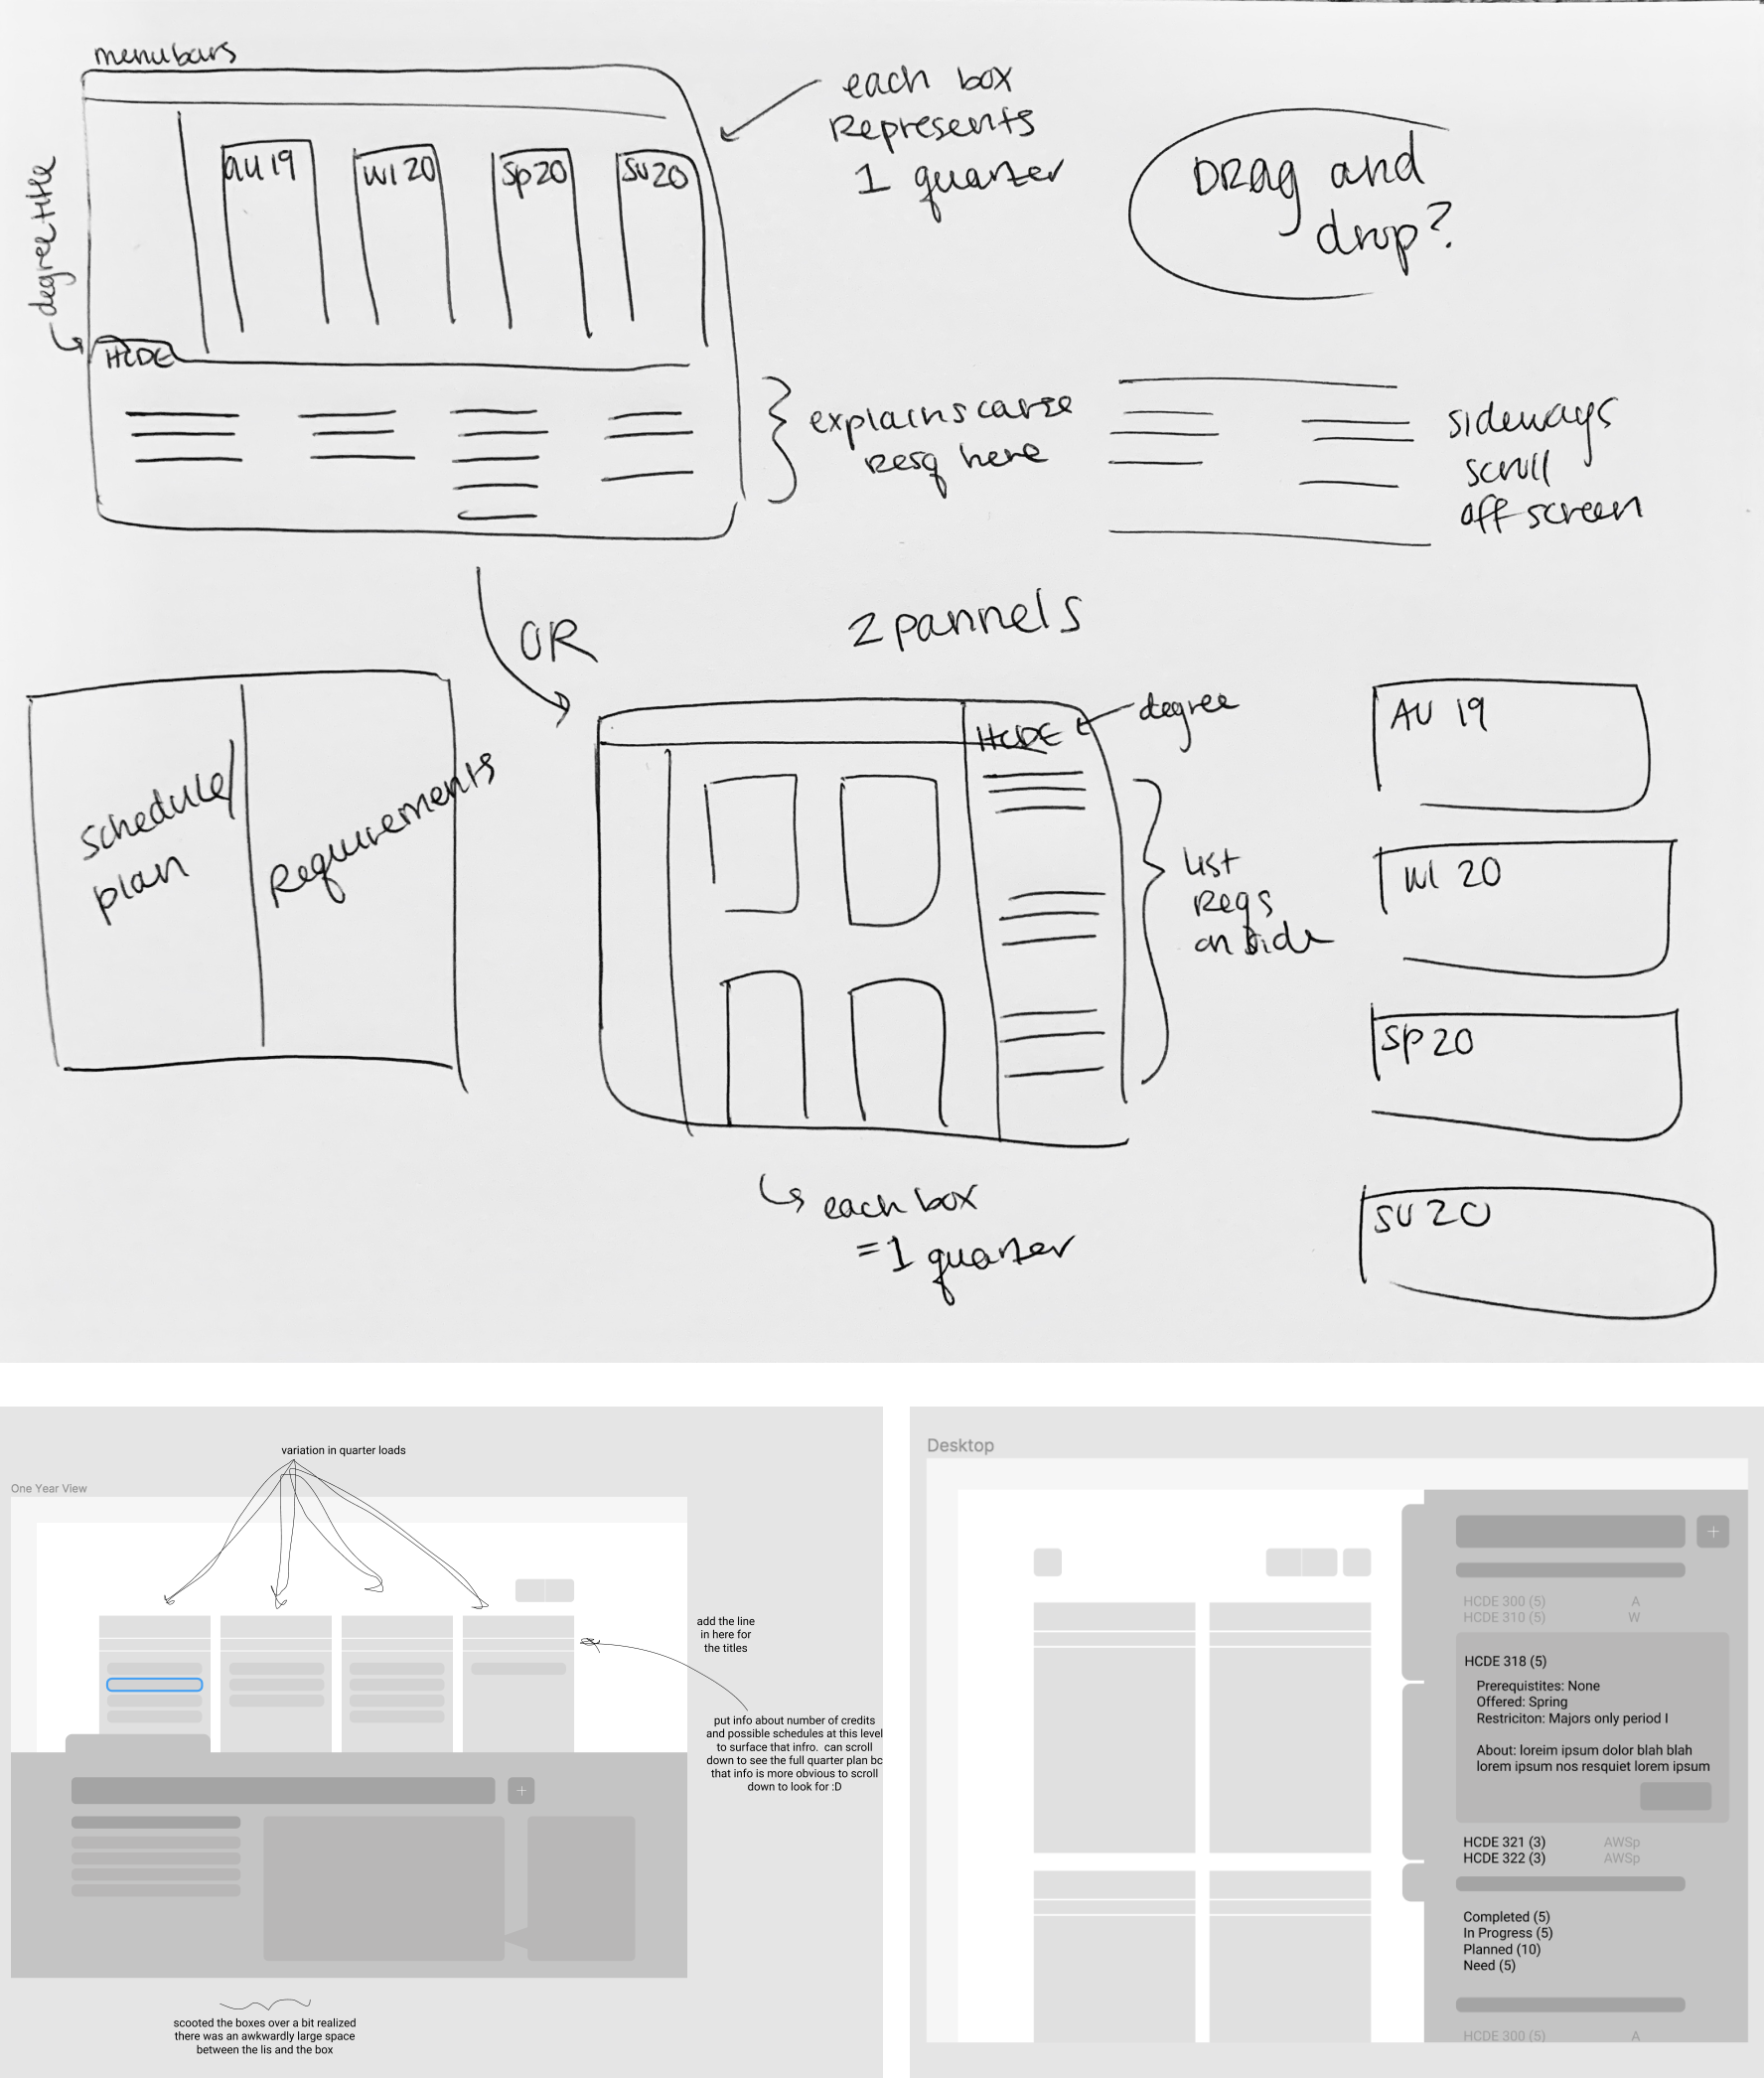 menubars
each box
Represents
1 quarter
Drag and
drop?
degree title
au 19
wi 20
Sp 20
SU 20
HCDE
explains carse
Resq here
sideways
scroll
off screen
OR
2 pannels
schedule/
plan
Requirements
HCDE
degree
list
Reqs
on side
AU 19
WI 20
SP 20
SU 20
each box
=1 quarter
variation in quarter loads
One Year View
add the line
in here for
the titles
put info about number of credits
and possible schedules at this level
to surface that infro. can scroll
down to see the full quarter plan bc
that info is more obvious to scroll
down to look for :D
+
scooted the boxes over a bit realized
there was an awkwardly large space
between the lis and the box
Desktop
+
HCDE 300 (5) A
HCDE 310 (5) W
HCDE 318 (5)
Prerequistites: None
Offered: Spring
Restriciton: Majors only period I
About: loreim ipsum dolor blah blah
lorem ipsum nos resquiet lorem ipsum
HCDE 321 (3) AWSp
HCDE 322 (3) AWSp
Completed (5)
In Progress (5)
Planned (10)
Need (5)
HCDE 300 (5) A